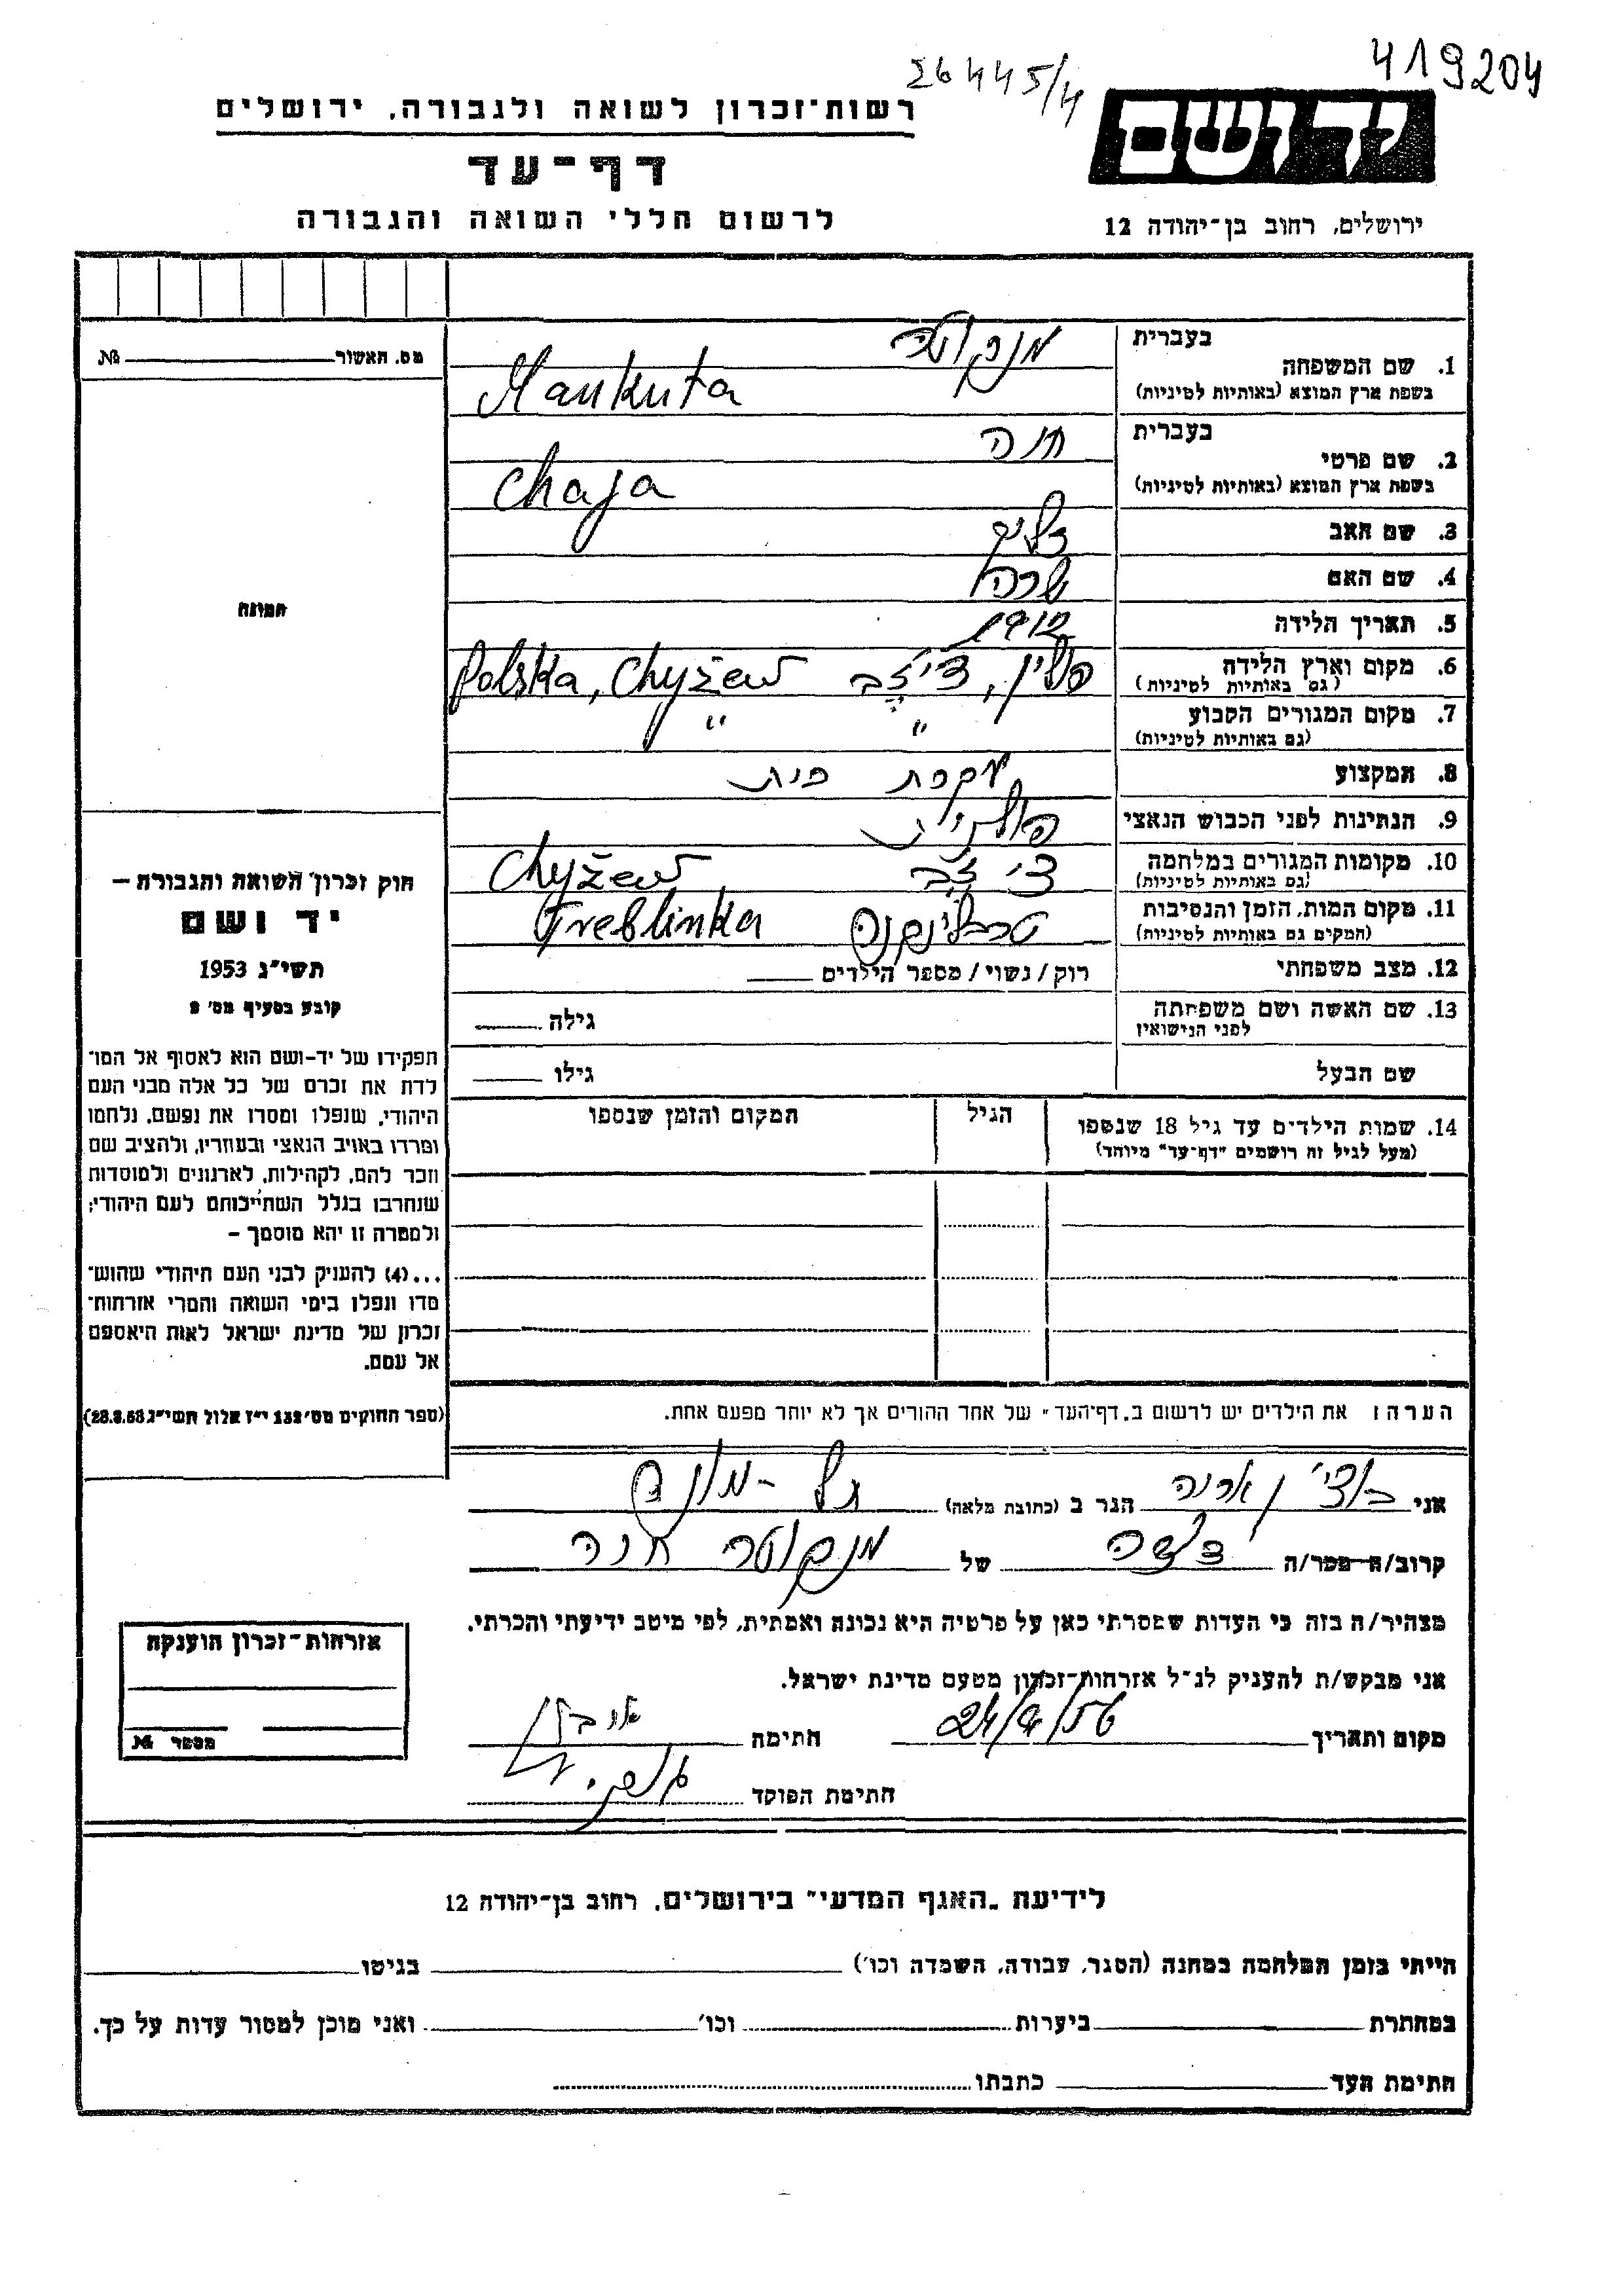 419204
26445/4
יד ושם
רשות־זכרון לשואה ולגבורה, ירושלים
דף-עד
לרשום חללי השואה והגבורה
ירושלים, רחוב בן־יהודה 12
מס. האשור № 
תמונה
בעברית
1. שם המשפחה
בשפת ארץ המוצא (באותיות לטיניות)
מנקוטה
Mankuta
בעברית
2. שם פרטי
בשפת ארץ המוצא (באותיות לטיניות)
חיה
Chaja
3. שם האב זליג
4. שם האם שרה
5. תאריך הלידה 1912
6. מקום וארץ הלידה
(גם באותיות לטיניות)
פולין, צ'יז'ב Polska, Chyżew
7. מקום המגורים הקבוע
(גם באותיות לטיניות)
" "
8. המקצוע עקרת בית
9. הנתינות לפני הכבוש הנאצי פולנית
10. מקומות המגורים במלחמה
(גם באותיות לטיניות)
צ'יז'ב Chyżew
11. מקום המות, הזמן והנסיבות
(המקום גם באותיות לטיניות)
טרבלינקה Treblinka
12. מצב משפחתי רוק/נשוי/מספר הילדים
13. שם האשה ושם משפחתה
לפני הנישואין
גילה
שם הבעל גילו
14. שמות הילדים עד גיל 18 שנספו
(מעל לגיל זה רושמים "דף־עד" מיוחד)
הגיל
המקום והזמן שנספו
חוק זכרון השואה והגבורה –
יד ושם
תשי"ג 1953
קובע בסעיף מס' 2
תפקידו של יד-ושם הוא לאסוף אל המו־
לדת את זכרם של כל אלה מבני העם
היהודי, שנפלו ומסרו את נפשם, נלחמו
ומרדו באויב הנאצי ובעוזריו, ולהציב שם
וזכר להם, לקהילות, לארגונים ולמוסדות
שנחרבו בגלל השתייכותם לעם היהודי;
ולמטרה זו יהא מוסמך –
...(4) להעניק לבני העם היהודי שהוש־
מדו ונפלו בימי השואה והמרי אזרחות־
זכרון של מדינת ישראל לאות היאספם
אל עמם.
(ספר החוקים מס' 132 י"ז אלול תשי"ג 28.8.53)
הערה: את הילדים יש לרשום ב„דף־העד" של אחד ההורים אך לא יותר מפעם אחת.
אני הגר ב (כתובת מלאה) תל-מונד
קרוב/ה מכר/ה של מנקוטה חיה
מצהיר/ה בזה כי העדות שמסרתי כאן על פרטיה היא נכונה ואמתית, לפי מיטב ידיעתי והכרתי.
אני מבקש/ת להעניק לנ"ל אזרחות־זכרון מטעם מדינת ישראל.
מקום ותאריך 24/4/56 חתימה
חתימת הפוקד
אזרחות־זכרון הוענקה
מספר №
לידיעת „האגף המדעי" בירושלים, רחוב בן־יהודה 12
הייתי בזמן המלחמה במחנה (הסגר, עבודה, השמדה וכו') בגיטו
במחתרת ביערות וכו' ואני מוכן למסור עדות על כך.
חתימת העד כתבתו